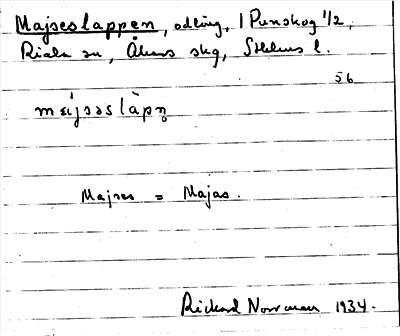 Majseslappen, odling, 1 Punskog 1/2,
Riala sn, Åkers skg, Sthlms l.
56
mɛ́jsəslàpn̥
Majses = Majas.
Rickard 1934.